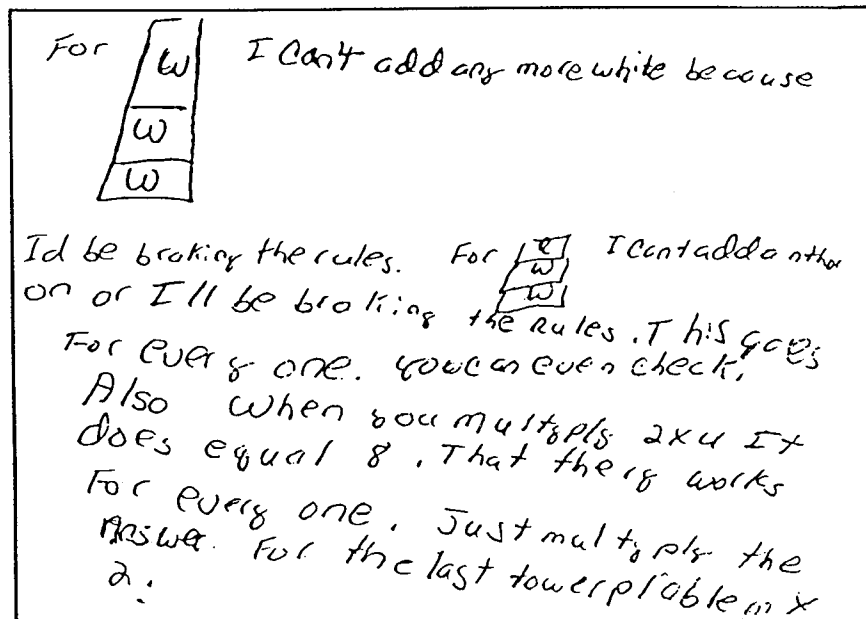 For W I Can't add any more white because
W
W
Id be braking the rules. For R I Cant add a nther
W
W
on or I'll be braking the Rules. This goes
For every one. you can even check.
Also when you multyply 2x4 It
does equal 8. That thery works
For every one. Just multyply the
Answer For the last tower plablem x
2.